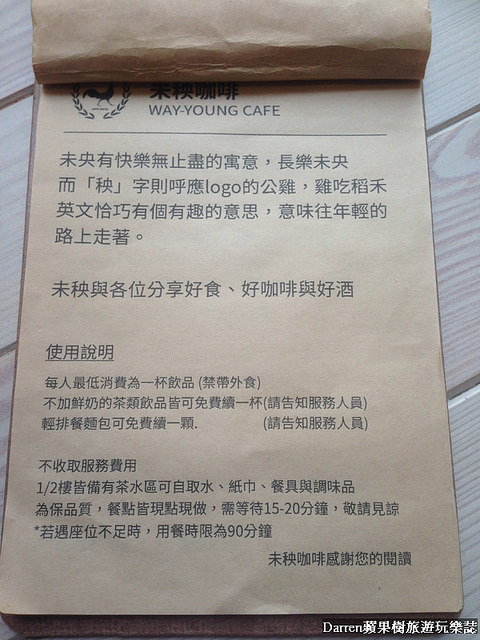 未秧咖啡
WAY-YOUNG CAFE
未央有快樂無止盡的寓意，長樂未央
而「秧」字則呼應logo的公雞，雞吃稻禾
英文恰巧有個有趣的意思，意味往年輕的
路上走著。
未秧與各位分享好食、好咖啡與好酒
使用說明
每人最低消費為一杯飲品 (禁帶外食)
不加鮮奶的茶類飲品皆可免費續一杯(請告知服務人員)
輕排餐麵包可免費續一顆. (請告知服務人員)
不收取服務費用
1/2樓皆備有茶水區可自取水、紙巾、餐具與調味品
為保品質，餐點皆現點現做，需等待15-20分鐘，敬請見諒
*若遇座位不足時，用餐時限為90分鐘
未秧咖啡感謝您的閱讀
Darren蘋果樹旅遊玩樂誌